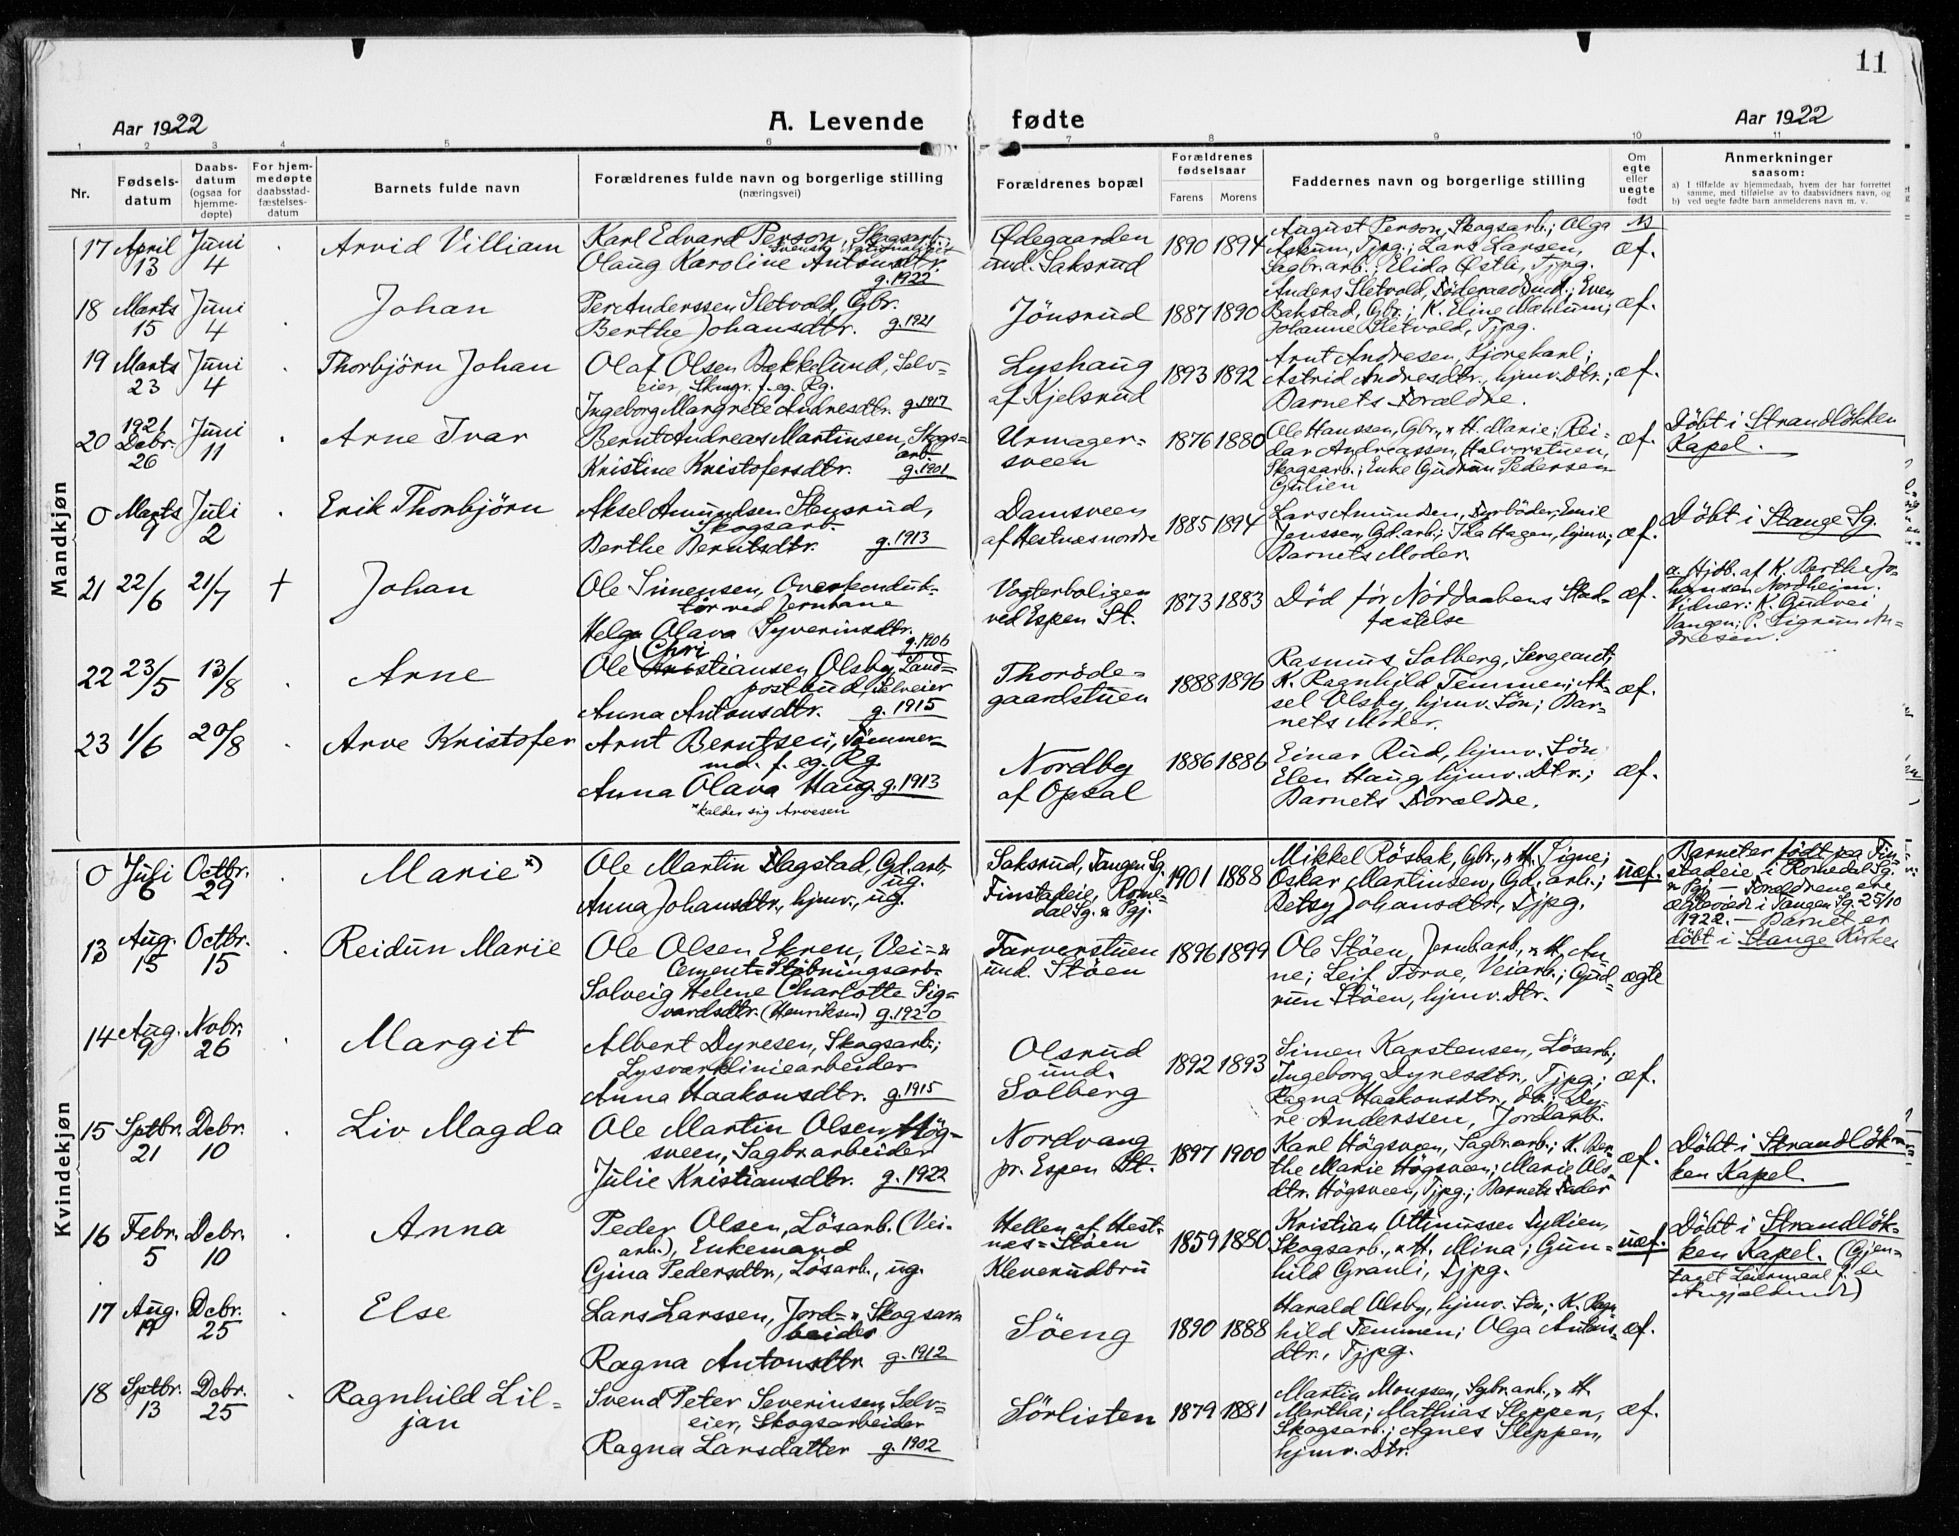 11
Aar 1922
A. Levende fødte
Aar 1922
1 2 3 4 5 6 7 8 9 10 11
Nr.
Fødsels-
datum
Daabs-
datum
(ogsaa for
hjemme-
døpte)
For hjem-
medøpte
daabsstad-
fæstelses-
datum
Barnets fulde navn
Forældrenes fulde navn og borgerlige stilling
(næringsvei)
Forældrenes bopæl
Forældrenes
fødselsaar
Farens Morens
Faddernes navn og borgerlige stilling
Om
egte
eller
uegte
født
Anmerkninger
saasom:
a) I tilfælde av hjemmedaab, hvem der har forrettet
samme, med tilføielse av to daabsvidners navn, og
b) ved uegte fødte barn anmelderens navn m. v.
Mandkjøn
17 April 13 Juni 4 Arvid Villiam
Karl Edvard Person, Skogsarb.,
svensk
Olaug Karoline Antonsdtr.
g. 1922
Ødegaarden
und. Saksrud
1890 1894
August Person, Skogsarb.; Olga
Askum, Tjpg.; Lars Larsen,
Sagbr.arb.; Elida Østli, Tjpg.
æf.
18 Marts 15 Juni 4 Johan
Per Anderssen Sletvold, Gbr.
Berthe Johansdtr. g. 1921
Jönsrud
1887 1890
Anders Sletvold, Föderaadsmd.; Even
Bakstad, Gbr.; K. Eline Mahlum;
Johanne Sletvold, Tjpg.
æf.
19 Marts 23 Juni 4 Thorbjörn Johan
Olaf Olsen Bækkelund, Selv-
eier, Skogr. f. eg. Rg.
Ingeborg Margrete Andresdtr. g. 1917
Lyshaug
af Kjelsrud
1893 1892
Arnt Andresen, Kjørekarl;
Astrid Andresdtr., hjmv. Dtr.;
Barnets Forældre.
æf.
20 1921 Debr. 26 Juni 11 Arne Ivar
Bernt Andreas Martinsen, Skogs-
arb.
Kristine Kristofersdtr. g. 1901
Urmager-
sveen
1876 1880
Ole Hanssen, Gbr., & H. Marie; Rei-
dar Andreassen, Halvorstuen,
Skogsarb.; Enke Gudrun Pedersen
Gulien
æf.
Döbt i Strandlökken
Kapel.
0 Marts 9 Juli 2 Erik Thorbjörn
Aksel Amundsen Stensrud,
Skogsarb.
Berthe Berntsdtr. g. 1913
Damsveen
af Hestnæs nordre
1885 1894
Lars Amundsen, Dyrbøder; Emil
Jenssen, Gd.arb.; Ida Hagen, hjmv.;
Barnets Moder.
æf.
Döbt i Stange Sg.
21 22/6 21/7 + Johan
Ole Simensen, Overkonduk-
tør ved Jernbane
Helga Olava Syverinsdtr.
g. 1906
Vogterboligen
ved Espen St.
1873 1883
Död för Nöddaabens Stad-
fæstelse
æf.
a. Hjdb. af K. Berthe Jo-
hansen Nordheim.
Vidner: K. Gudvei
Vangen; P. Sigrun An-
dresen.
22 23/5 13/8 Arne
Chri
Ole Kristiansen Olsby, Land-
postbud, Selveier
Anna Antonsdtr. g. 1915
Thoröde-
gaardstuen
1888 1896
Rasmus Solberg, Sergeant;
K. Ragnhild Temmen; Ak-
sel Olsby, hjmv. Sön; Bar-
nets Moder.
æf.
23 1/6 20/8 Arve Kristofer
Arnt Berntsen*, Tømmer-
md. f. eg. Rg.
Anna Olava Haug. g. 1913
*kalder sig Arvesen
Nordby
af Opsal
1886 1886
Einar Rud, hjmv. Sön
Elen Haug, hjmv. Dtr.;
Barnets Forældre.
æf.
Kvindekjøn
0 Juli 6 Octbr. 29 Marie*)
Ole Martin Flagstad, Gd.arb.,
ug.
Anna Johansdtr., hjmv., ug.
Saksrud, Tangen Sg.
Finstadeie, Rome-
dal Sg. & Pgj.
1901 1888
Mikkel Rösbak, Gbr., & H. Signe;
Oskar Martinsen, Gd. arb.;
Betsy Johansdtr., Tjpg.
uæf.
Barnet er födt paa Fin-
stadeie i Romedal Sg.
& Pgj. — Forældrene ere
ægteviede i Tangen Sg. 25/10
1922. — Barnet er
döbt i Stange Kirke
13 Aug. 15 Octbr. 15 Reidun Marie
Ole Olsen Ekren, Vei- &
Cement-Stöbningsarb.
Solveig Helene Charlotte Sig-
vardsdtr. (Henriksen) g. 1920
Tarverstuen
und. Stöen
1896 1899
Ole Stöen, Jernb.arb., & H. An
ne; Leif Torve, Veiarb.; Gud-
run Stöen, hjmv. Dtr.
ægte
14 Aug. 9 Nobr. 26 Margit
Albert Dyresen, Skogsarb.;
Lysverkliniearbeider
Anna Haakonsdtr. g. 1915
Olsrud
und.
Solberg
1892 1893
Simen Karstensen, Lösarb;
Ingeborg Dyresdtr., Tjpg.;
Ragna Haakonsdtr., do.; Dy-
re Anderssen, Jordarb.
æf.
15 Septbr. 21 Debr. 10 Liv Magda
Ole Martin Olsen Hög-
sveen, Sagbr.arbeider
Julie Kristiansdtr. g. 1922
Nordvang
pr. Espen St.
1897 1900
Karl Högsveen, Sagbr.arb.; K. Ber-
the Marie Högsveen; Marie Ols
dtr. Högsveen, Tjpg.; Barnets Fader
æf.
Döbt i Strandlök-
ken Kapel.
16 Febr. 5 Debr. 10 Anna
Peder Olsen, Lösarb. (Vei-
arb.), Enkemand
Gina Pedersdtr., Lösarb., ug.
Hellen af Hest-
næs-Stöen
Kleverudbru
1859 1880
Kristian Ottinussen Syllien,
Skogsarb., & H. Mina; Gun-
hild Granli, Tjpg.
uæf.
Döbt i Strandlök-
ken Kapel. (Gjen-
taget Leiermaal f. de
Angjældende)
17 Aug. 19 Debr. 25 Else
Lars Larssen, Jord- & Skogsar-
beider
Ragna Antonsdtr g. 1912
Söeng
1890 1888
Harald Olsby, hjmv. Sön; K. Ragn
hild Temmen; Olga Antons-
dtr., Tjpg.
æf.
18 Septbr. 13 Debr. 25 Ragnhild Lil-
jan
Svend Peter Severinsen, Selv-
eier, Skogsarbeider
Ragna Larsdatter g. 1902
Sörlisten
1879 1881
Martin Monssen, Sgbr.arb., & H.
Martha; Mathias Sleppen,
Skogsarb.; Agnes Sleppen,
hjmv. Dtr.
æf.